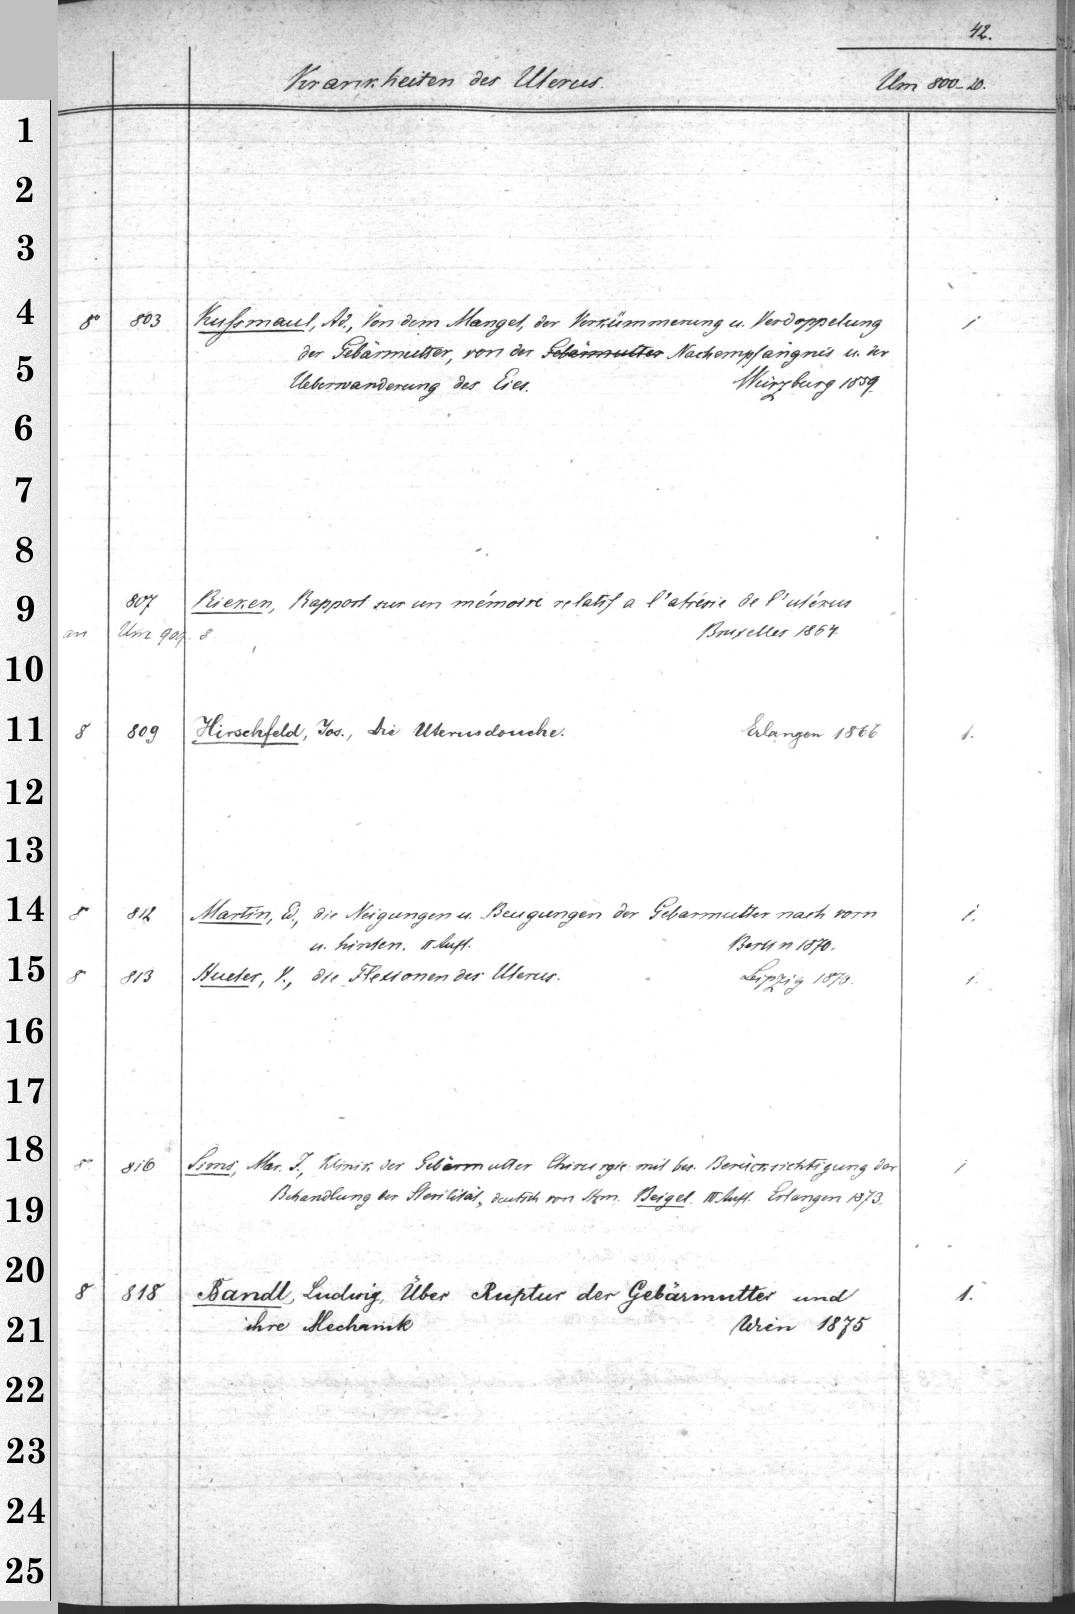 42.
Krankheiten des Uterus. Um 800-20.
1
2
3
4
8° 803 Kussmaul, Ad., Von dem Mangel, der Verkümmerung u. Verdoppelung 1
der Gebärmutter, von der Gebärmutter Nachempfängnis u. der
5
Ueberwanderung des Eies. Würzburg 1859.
6
7
8
9
807 Rieken, Rapport sur un mémoire relatif a l'atrésie de l'utérus
an Um 8 Bruxelles 1867
10
11
8 809 Hirschfeld, Jos., Die Uterusdouche. Erlangen 1866 1.
12
13
14
8° 812 Martin, Ed., die Neigungen u. Beugungen der Gebärmutter nach vorn 1.
u. hinten. II Aufl. Berlin 1870.
15
8 813 Hueter, V., die Flexionen des Uterus. Leipzig 1870. 1.
16
17
18
8° 816 Sims, Mar. J., Klinik der Gebärmutter Chirurgie mit bes. Berücksichtigung der 1
19
Behandlung der Sterilität, deutsch von Hrm. Beigel. III Aufl. Erlangen 1873.
20
8 818 Bandl, Ludwig, Über Ruptur der Gebärmutter und 1.
21
ihre Mechanik Wien 1875
22
23
24
25